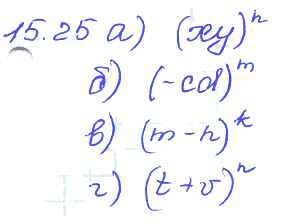 15.25 а) (xy)ⁿ
б) (-cd)ᵐ
в) (m-n)ᵏ
г) (t+v)ⁿ